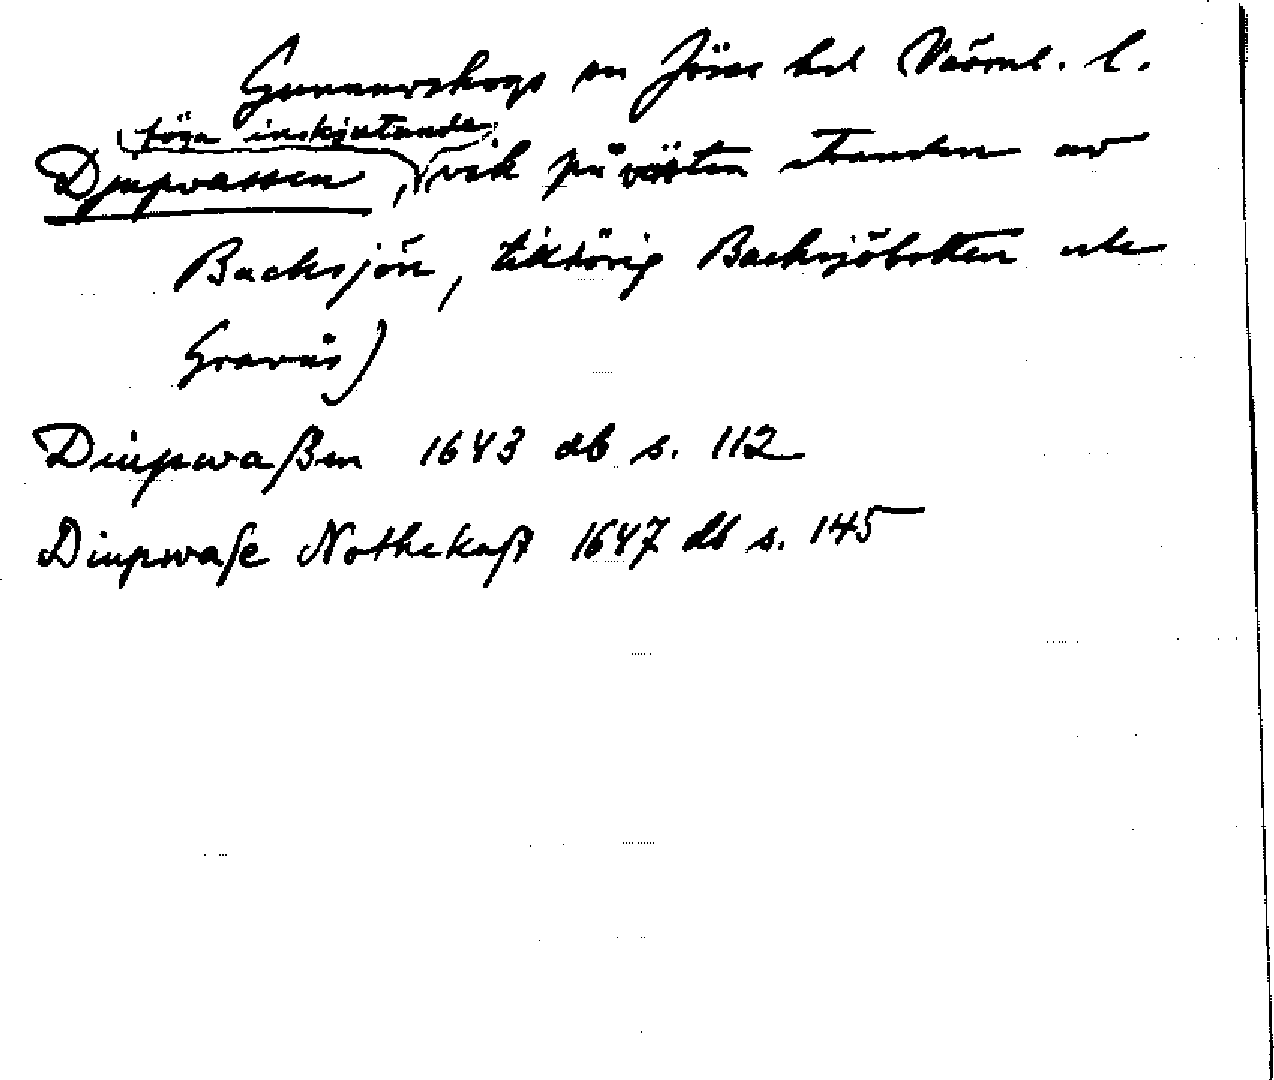 Gunnarskogs sn Jösse hd Värml. l.
föga inskjutande
Djupvassen, vik på västra stranden av
Backsjön, tillhörig Backsjöbotten och
Gravås)
Diupwaßen 1643 db s. 112
Diupwaße Nothekast 1647 db s. 145